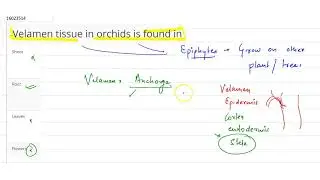 16023514
Velamen tissue in orchids is found in
Shoot
Epiphytes → Grow on other
plant / trees
Root
Velamen: Anchorage
Velamen
Epidermis
Cortex
endodermis
Stele
Leaves
Flowers